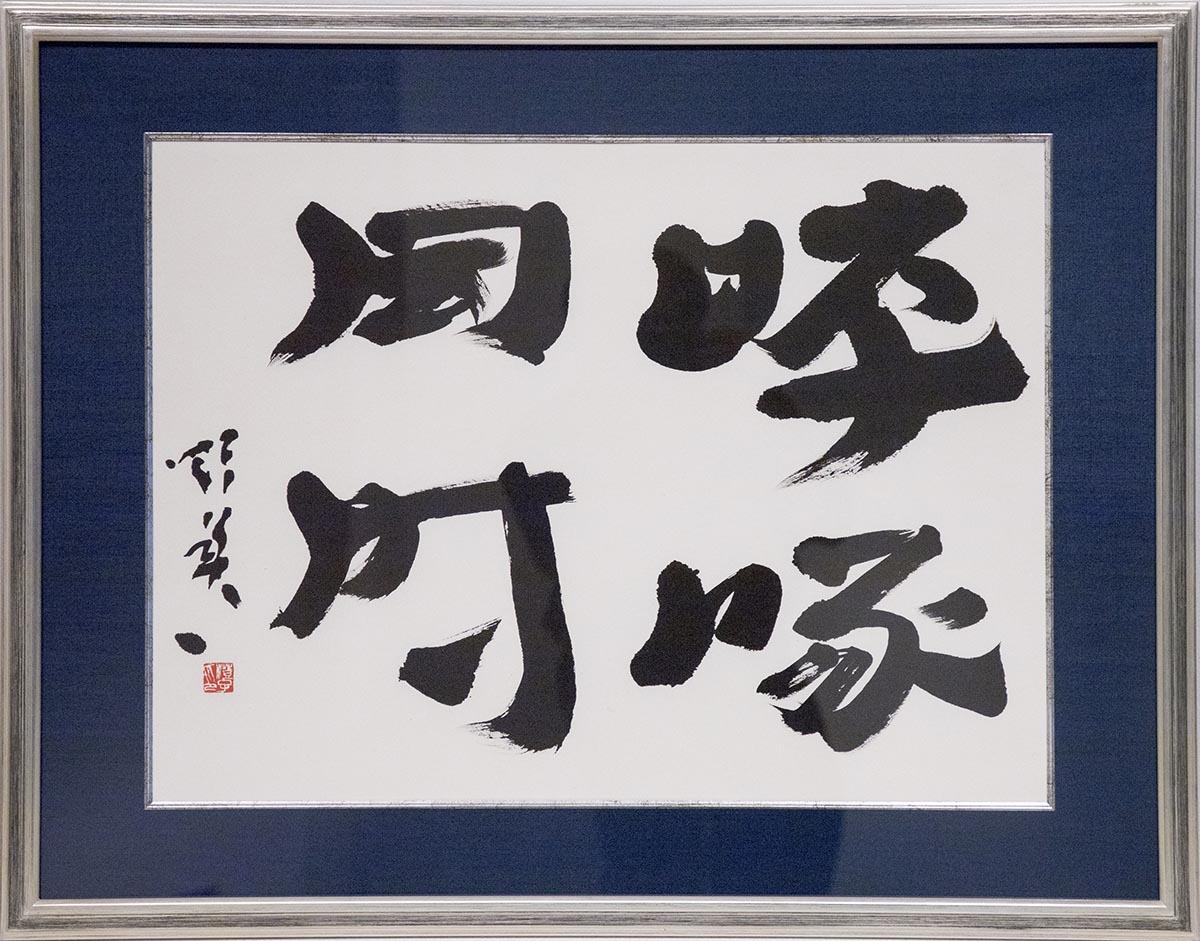 啐啄
同時